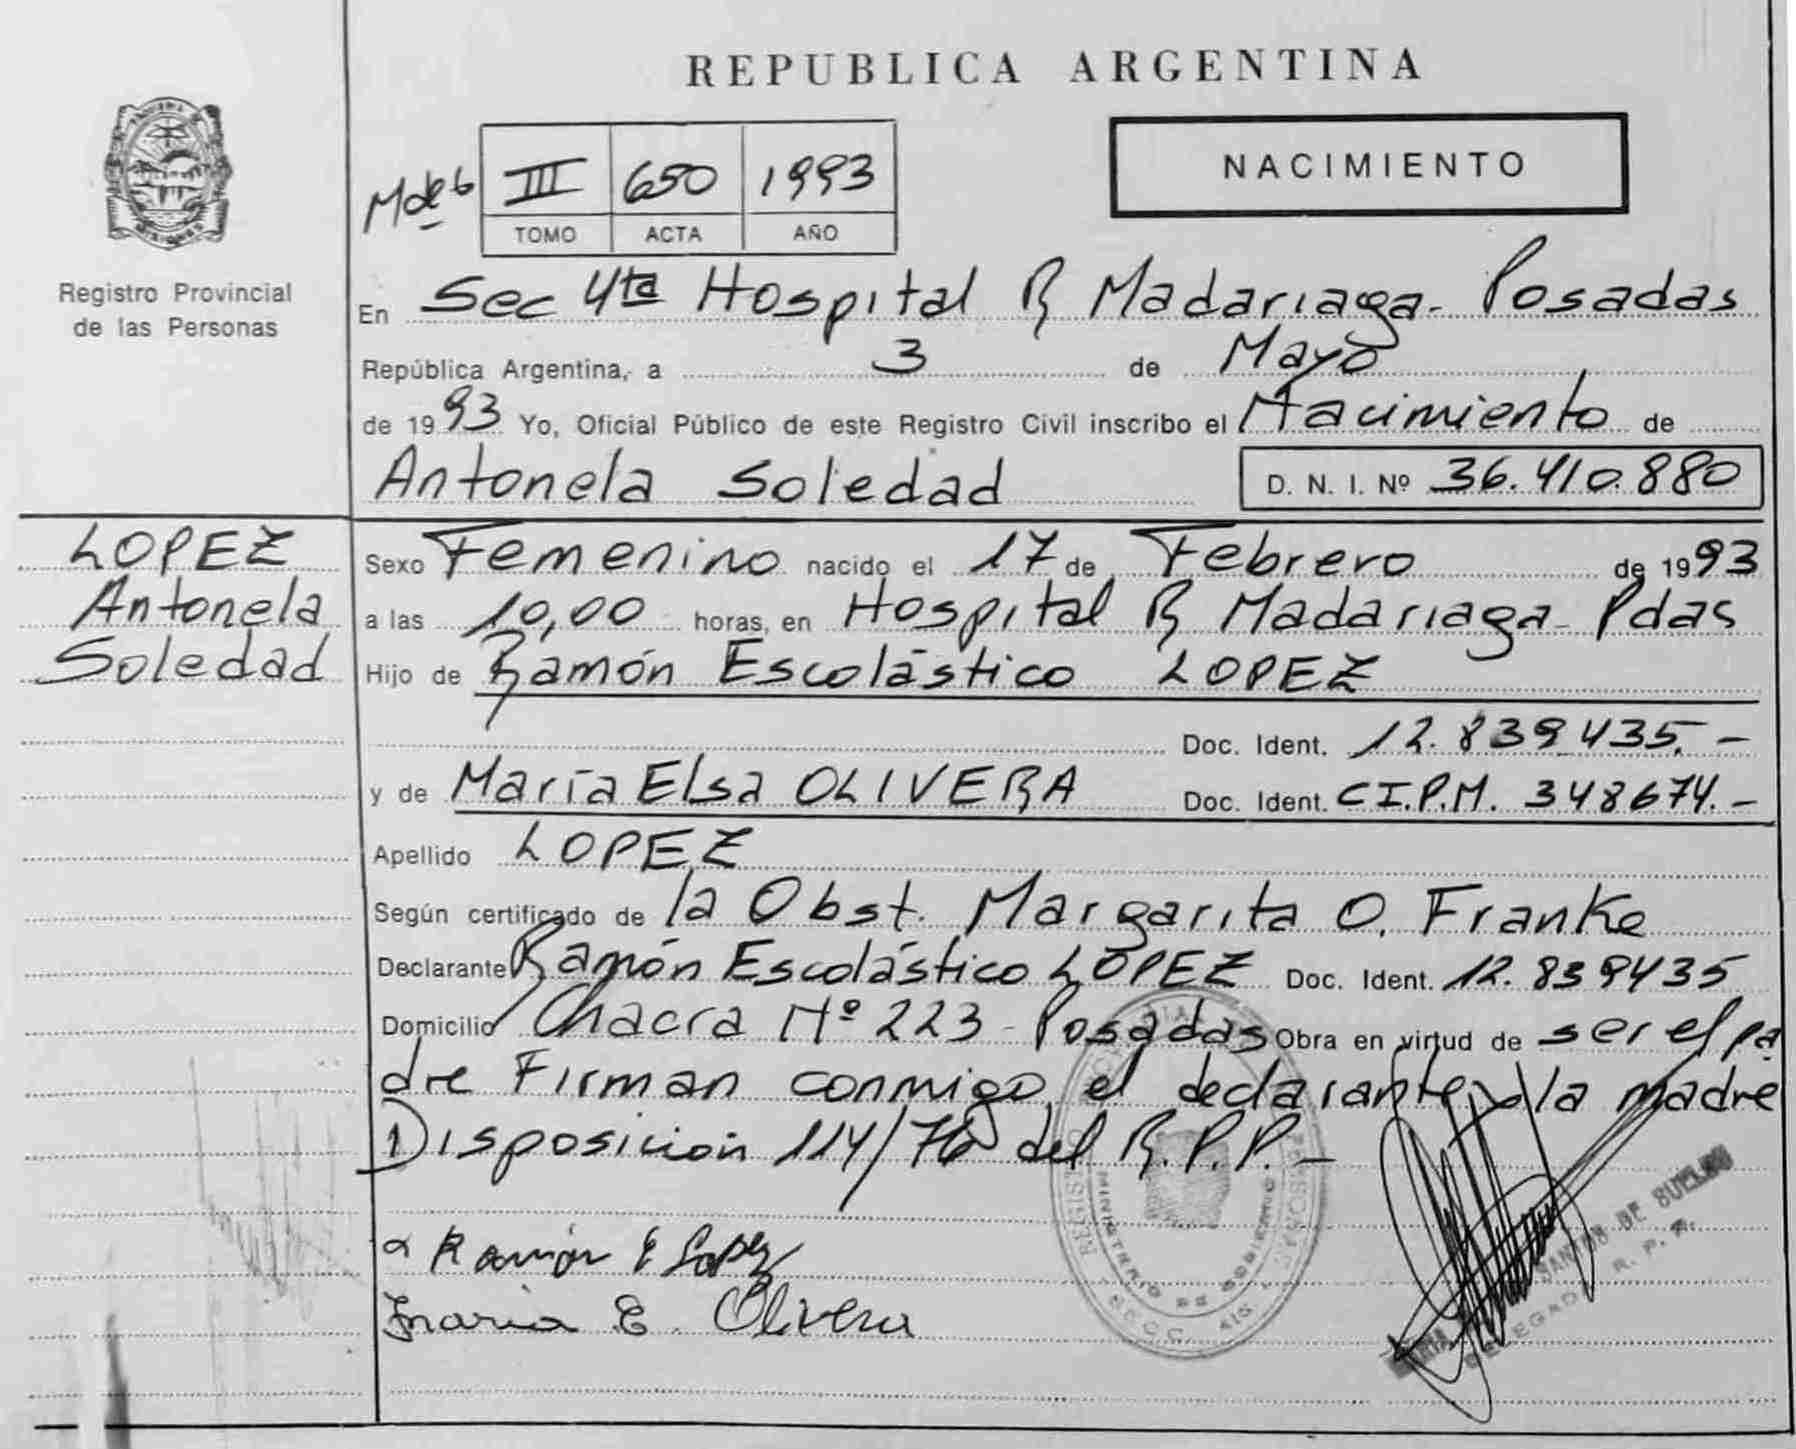 REPUBLICA ARGENTINA
NACIMIENTO
III 650 1993
TOMO ACTA AÑO
MISIONES
Registro Provincial
de las Personas
En Sec 4ta Hospital R Madariaga - Posadas
República Argentina, a 3 de Mayo
de 1993 Yo, Oficial Público de este Registro Civil inscribo el Nacimiento de
Antonela Soledad D. N. I. Nº 36.410.880
LOPEZ
Antonela
Soledad
Sexo Femenino nacido el 17 de Febrero de 1993
a las 10,00 horas, en Hospital R Madariaga - Pdas
Hijo de Ramón Escolástico LOPEZ
Doc. Ident. 12.839.435.-
y de María Elsa OLIVERA Doc. Ident. C.I.P.M. 348674.-
Apellido LOPEZ
Según certificado de la Obst. Margarita O. Franke
Declarante Ramón Escolástico LOPEZ Doc. Ident. 12.839435
Domicilio Chacra Nº 223 - Posadas Obra en virtud de ser el pa
dre Firman conmigo el declarante y la madre
Disposición 114/76 del R.P.P.-
Ramón E Lopez
Maria E. Olivera
MINISTERIO DE GOBIERNO
SANTOS DE